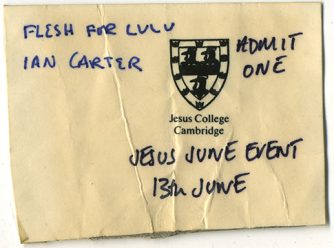 FLESH FOR LULU
IAN CARTER
ADMIT
ONE
Jesus College
Cambridge
JESUS JUNE EVENT
13TH JUNE